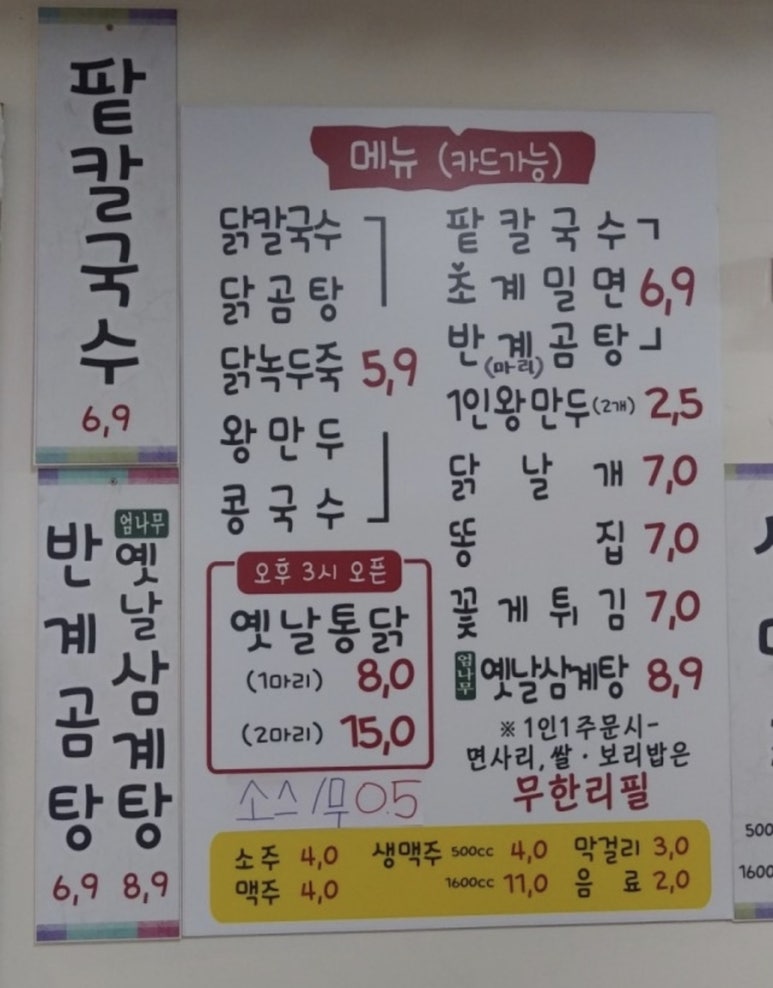 팥칼국수
6,9
엄나무
옛날삼계탕
반계곰탕
6,9 8,9
메뉴 (카드가능)
닭칼국수
닭곰탕
닭녹두죽 5,9
왕만두
콩국수
오후 3시 오픈
옛날통닭
(1마리) 8,0
(2마리) 15,0
소스/무 0.5
팥칼국수
초계밀면 6,9
반계곰탕
(마리)
1인왕만두(2개) 2,5
닭날개 7,0
똥집 7,0
꽃게튀김 7,0
엄나무 옛날삼계탕 8,9
※ 1인1주문시-
면사리, 쌀·보리밥은
무한리필
소주 4,0 생맥주 500cc 4,0 막걸리 3,0
맥주 4,0 1600cc 11,0 음료 2,0
500
1600